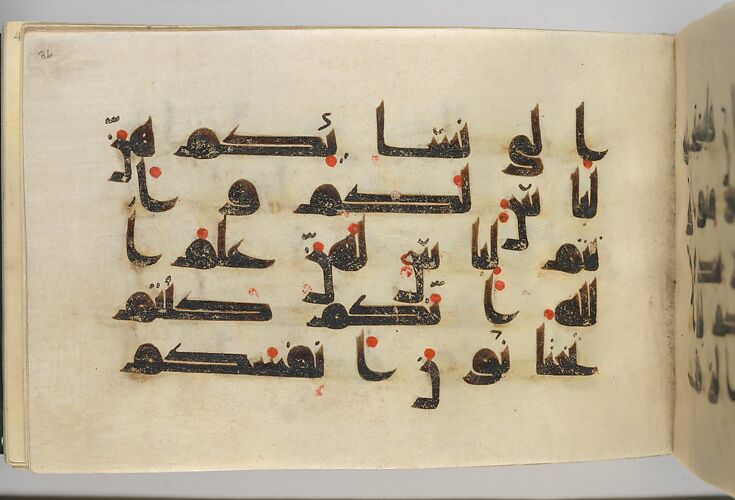 الى نسائكم هن
لباس لكم وا
نتم لباس لهن علم ا
لله انكم كنتم
تختانون انفسكم